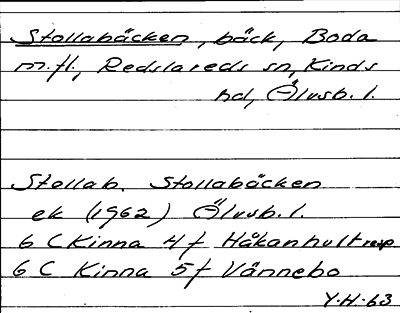 Stollabäcken, bäck, Boda
m.fl., Redslareds sn, Kinds
hd, Älvsb. l.
Stollab. Stollabäcken
ek (1962) Älvsb. l.
6 C Kinna 4 f Håkanhult resp
6 C Kinna 5 f Vännebo
Y.H. 63